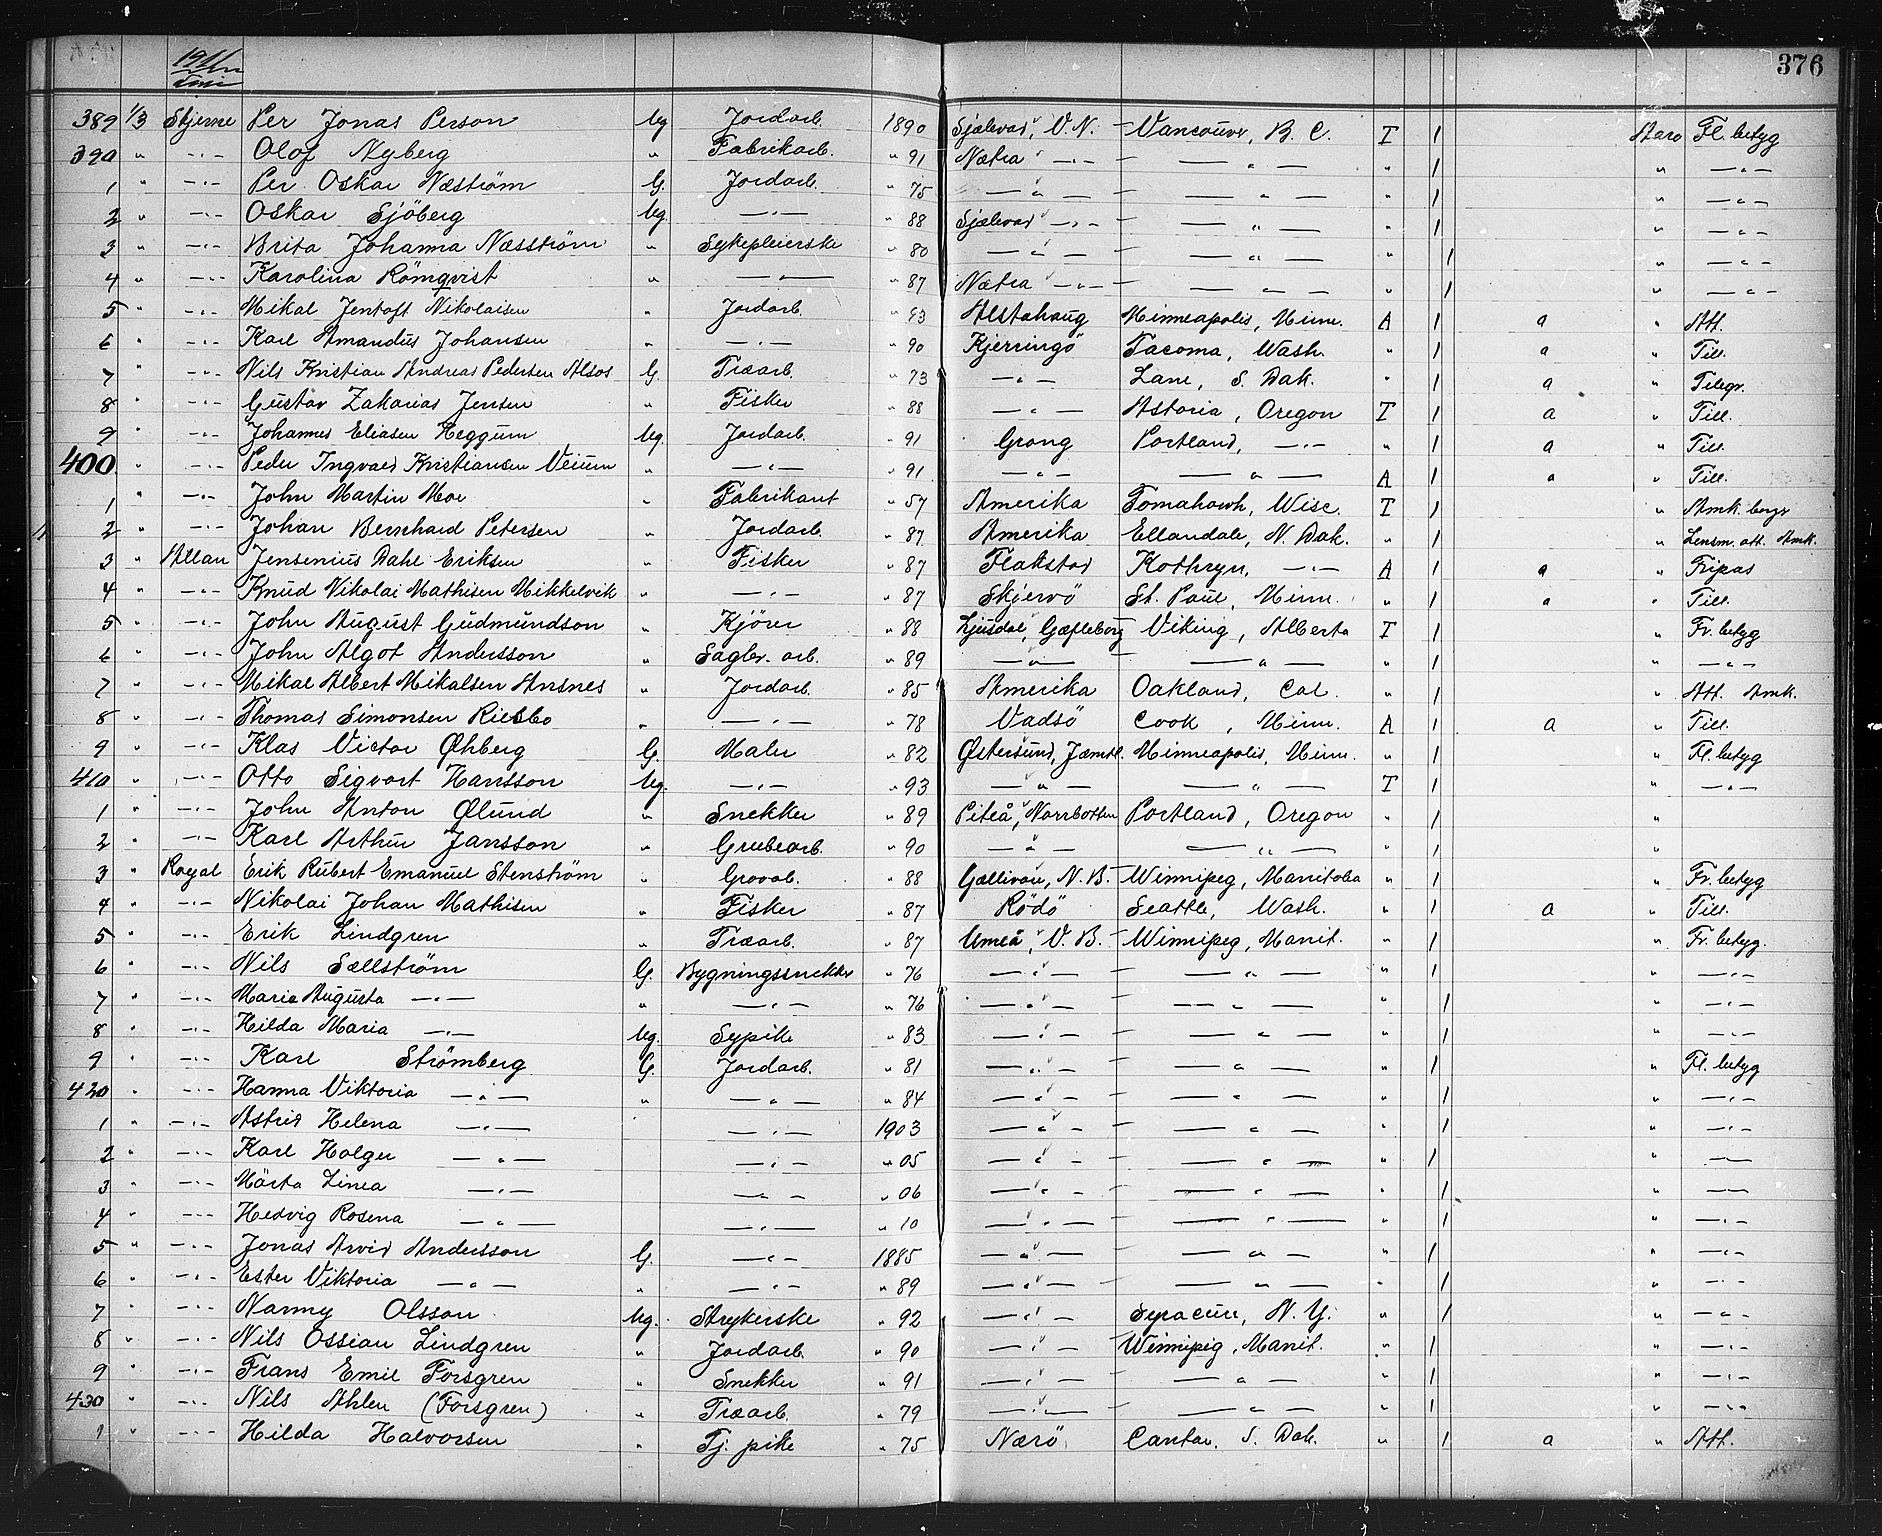 376
1911
389 1/3 Stjerne Per Jonas Person Ug Jordarb. 1890 Sjælevad, V.N. Vancouver, B.C. T 1 Staro Fl. betyg
390 " -"- Olof Nyberg " Fabrikarb. " 91 Nætra -"- -"- " 1 " -"-
1 " -"- Per Oskar Næström G. Jordarb. " 75 -"- -"- " 1 " -"-
2 " -"- Oskar Sjöberg Ug. -"- " 88 Sjælevad -"- -"- " 1 " -"-
3 " -"- Brita Johanna Næsström " Sykepleierske " 80 -"- -"- " 1 " -"-
4 " -"- Karolina Römqvist " -"- " 87 Nætra -"- -"- " 1 " -"-
5 " -"- Mikal Jentoft Nikolaisen " Jordarb. " 93 Alstahaug Minneapolis, Minn. A 1 a " Att.
6 " -"- Karl Amandus Johansen " -"- " 90 Kjerringö Tacoma, Wash. " 1 a " Till.
7 " -"- Nils Kristian Andreas Pedersen Alsos G. Træarb. " 73 -"- Lane, S. Dak. " 1 a " Telegr.
8 " -"- Gustav Zakarias Jensen " Fisker " 88 -"- Astoria, Oregon T 1 a " Till.
9 " -"- Johannes Eliasen Heggum Ug. Jordarb. " 91 Grong Portland, -"- " 1 a " Till.
400 " -"- Peder Ingvald Kristiansen Veium " -"- " 91 -"- -"- A 1 a " Till.
1 " -"- John Martin Moe " Fabrikant " 57 Amerika Tomahowh, Wisc. T 1 " Amk. borgr
2 " -"- Johan Bernhard Petersen " Jordarb. " 87 Amerika Ellandale, N. Dak. " 1 " Lensm. att. Amk.
3 " Allan Jensenius Dahl Eriksen " Fisker " 87 Flakstad Kathryn, -"- A 1 a " Fripas
4 " -"- Knud Nikolai Mathisen Mikkelvik " -"- " 87 Skjervö St. Paul, Minn. " 1 a " Till.
5 " -"- John August Gudmundson " Kjörer " 88 Ljusdal, Gæfleborg Viking, Alberta T 1 " Fr. betyg
6 " -"- John Algot Andersson " Sagbr. arb. " 89 -"- -"- " 1 " -"-
7 " -"- Mikal Albert Mikalsen Ansnes " Jordarb. " 85 Amerika Oakland, Cal. " 1 " Att. Amk.
8 " -"- Thomas Simonsen Riesbo " -"- " 78 Vadsö Cook, Minn. A 1 a " Till.
9 " -"- Klas Victor Øhberg G. Maler " 82 Østersund, Jæmtl. Minneapolis, Minn. " 1 " Fl. betyg
410 " -"- Otto Sigvart Hansson Ug. -"- " 93 -"- -"- T 1 " -"-
1 " -"- John Anton Ølund " Snekker " 89 Piteå, Norrbotten Portland, Oregon " 1 "
2 " -"- Karl Arthur Jansson " Grubearb. " 90 -"- -"- " 1 "
3 " Royal Erik Rubert Emanuel Stenström " Grovarb. " 88 Gællivare, N.B. Winnipeg, Manitoba " 1 " Fr. betyg
4 " -"- Nikolai Johan Mathisen " Fisker " 87 Rödö Seattle, Wash. " 1 a " Till.
5 " -"- Erik Lindgren " Træarb. " 87 Umeå, V.B. Winnipeg, Manit. " 1 " Fr. betyg.
6 " -"- Nils Sællström G. Bygningssnekker " 76 -"- -"- " 1 " -"-
7 " -"- Maria Augusta -"- " -"- " 76 -"- -"- " 1 " -"-
8 " -"- Hilda Maria -"- Ug. Sypike " 83 -"- -"- " 1 " -"-
9 " -"- Karl Strömberg G. Jordarb. " 81 -"- -"- " 1 " Fl. betyg
420 " -"- Hanna Viktoria -"- " -"- " 84 -"- -"- " 1 " -"-
1 " -"- Astrid Helena -"- -"- 1903 -"- -"- " 1 " -"-
2 " -"- Karl Holger -"- -"- " 05 -"- -"- " 1 " -"-
3 " -"- Märta Linea -"- -"- " 06 -"- -"- " 1 " -"-
4 " -"- Hedvig Rosena -"- -"- " 10 -"- -"- " 1 " -"-
5 " -"- Jonas Arvid Andersson G. -"- 1885 -"- -"- " 1 " -"-
6 " -"- Ester Viktoria -"- " -"- " 89 -"- -"- " 1 " -"-
7 " -"- Nanny Olsson Ug. Strykerske " 92 -"- Syracuse, N.Y. " 1 " -"-
8 " -"- Nils Ossian Lindgren " Jordarb. " 90 -"- Winnipeg, Manit. " 1 " -"-
9 " -"- Frans Emil Forsgren " Snekker " 91 -"- -"- " 1 " -"-
430 " -"- Nils Ahlen (Forsgren) " Træarb. " 79 -"- -"- " 1 " -"-
1 " -"- Hilda Halvorsen " Tj. pike " 75 Nærö Canton, S. Dak. " 1 a " Att.